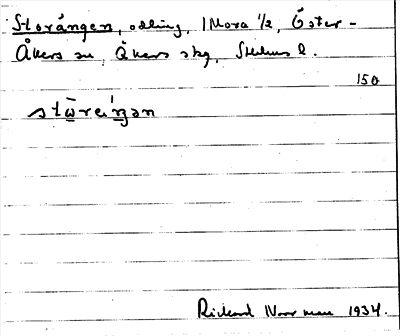 Storängen, odling, 1 Mora 1/2, Öster-
Åkers sn, Åkers skg, Sthlms l.
150
stω̄reiŋən
Rickard Norrman 1934.